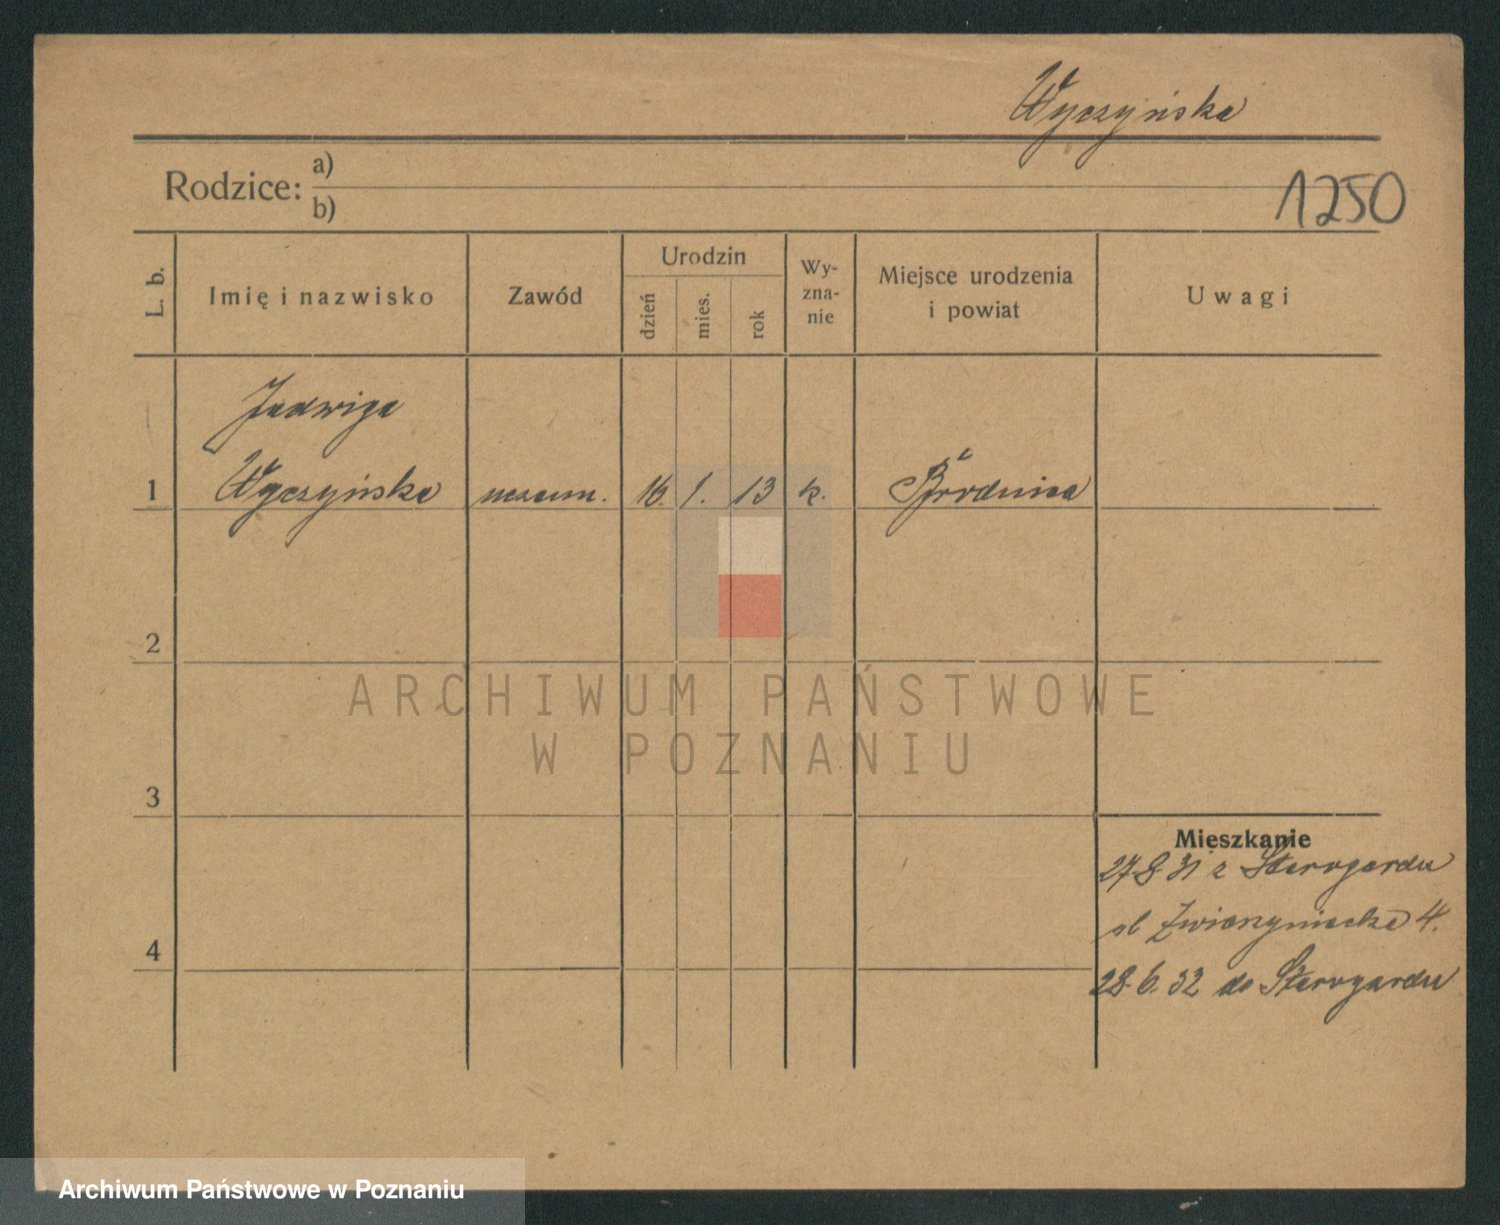 Wyczyńska
Rodzice: a)
b)
1250
L. b.
Imię i nazwisko
Zawód
Urodzin
dzień
mies.
rok
Wy-
zna-
nie
Miejsce urodzenia
i powiat
Uwagi
Jadwiga
1 Wyczyńska uczenn. 16. 1. 13 k. Brodnica
2
ARCHIWUM PAŃSTWOWE
W POZNANIU
3
Mieszkanie
27.8.31 z Starogardu
ul Zwierzyniecka 4.
4
28.6.32 do Starogardu
Archiwum Państwowe w Poznaniu